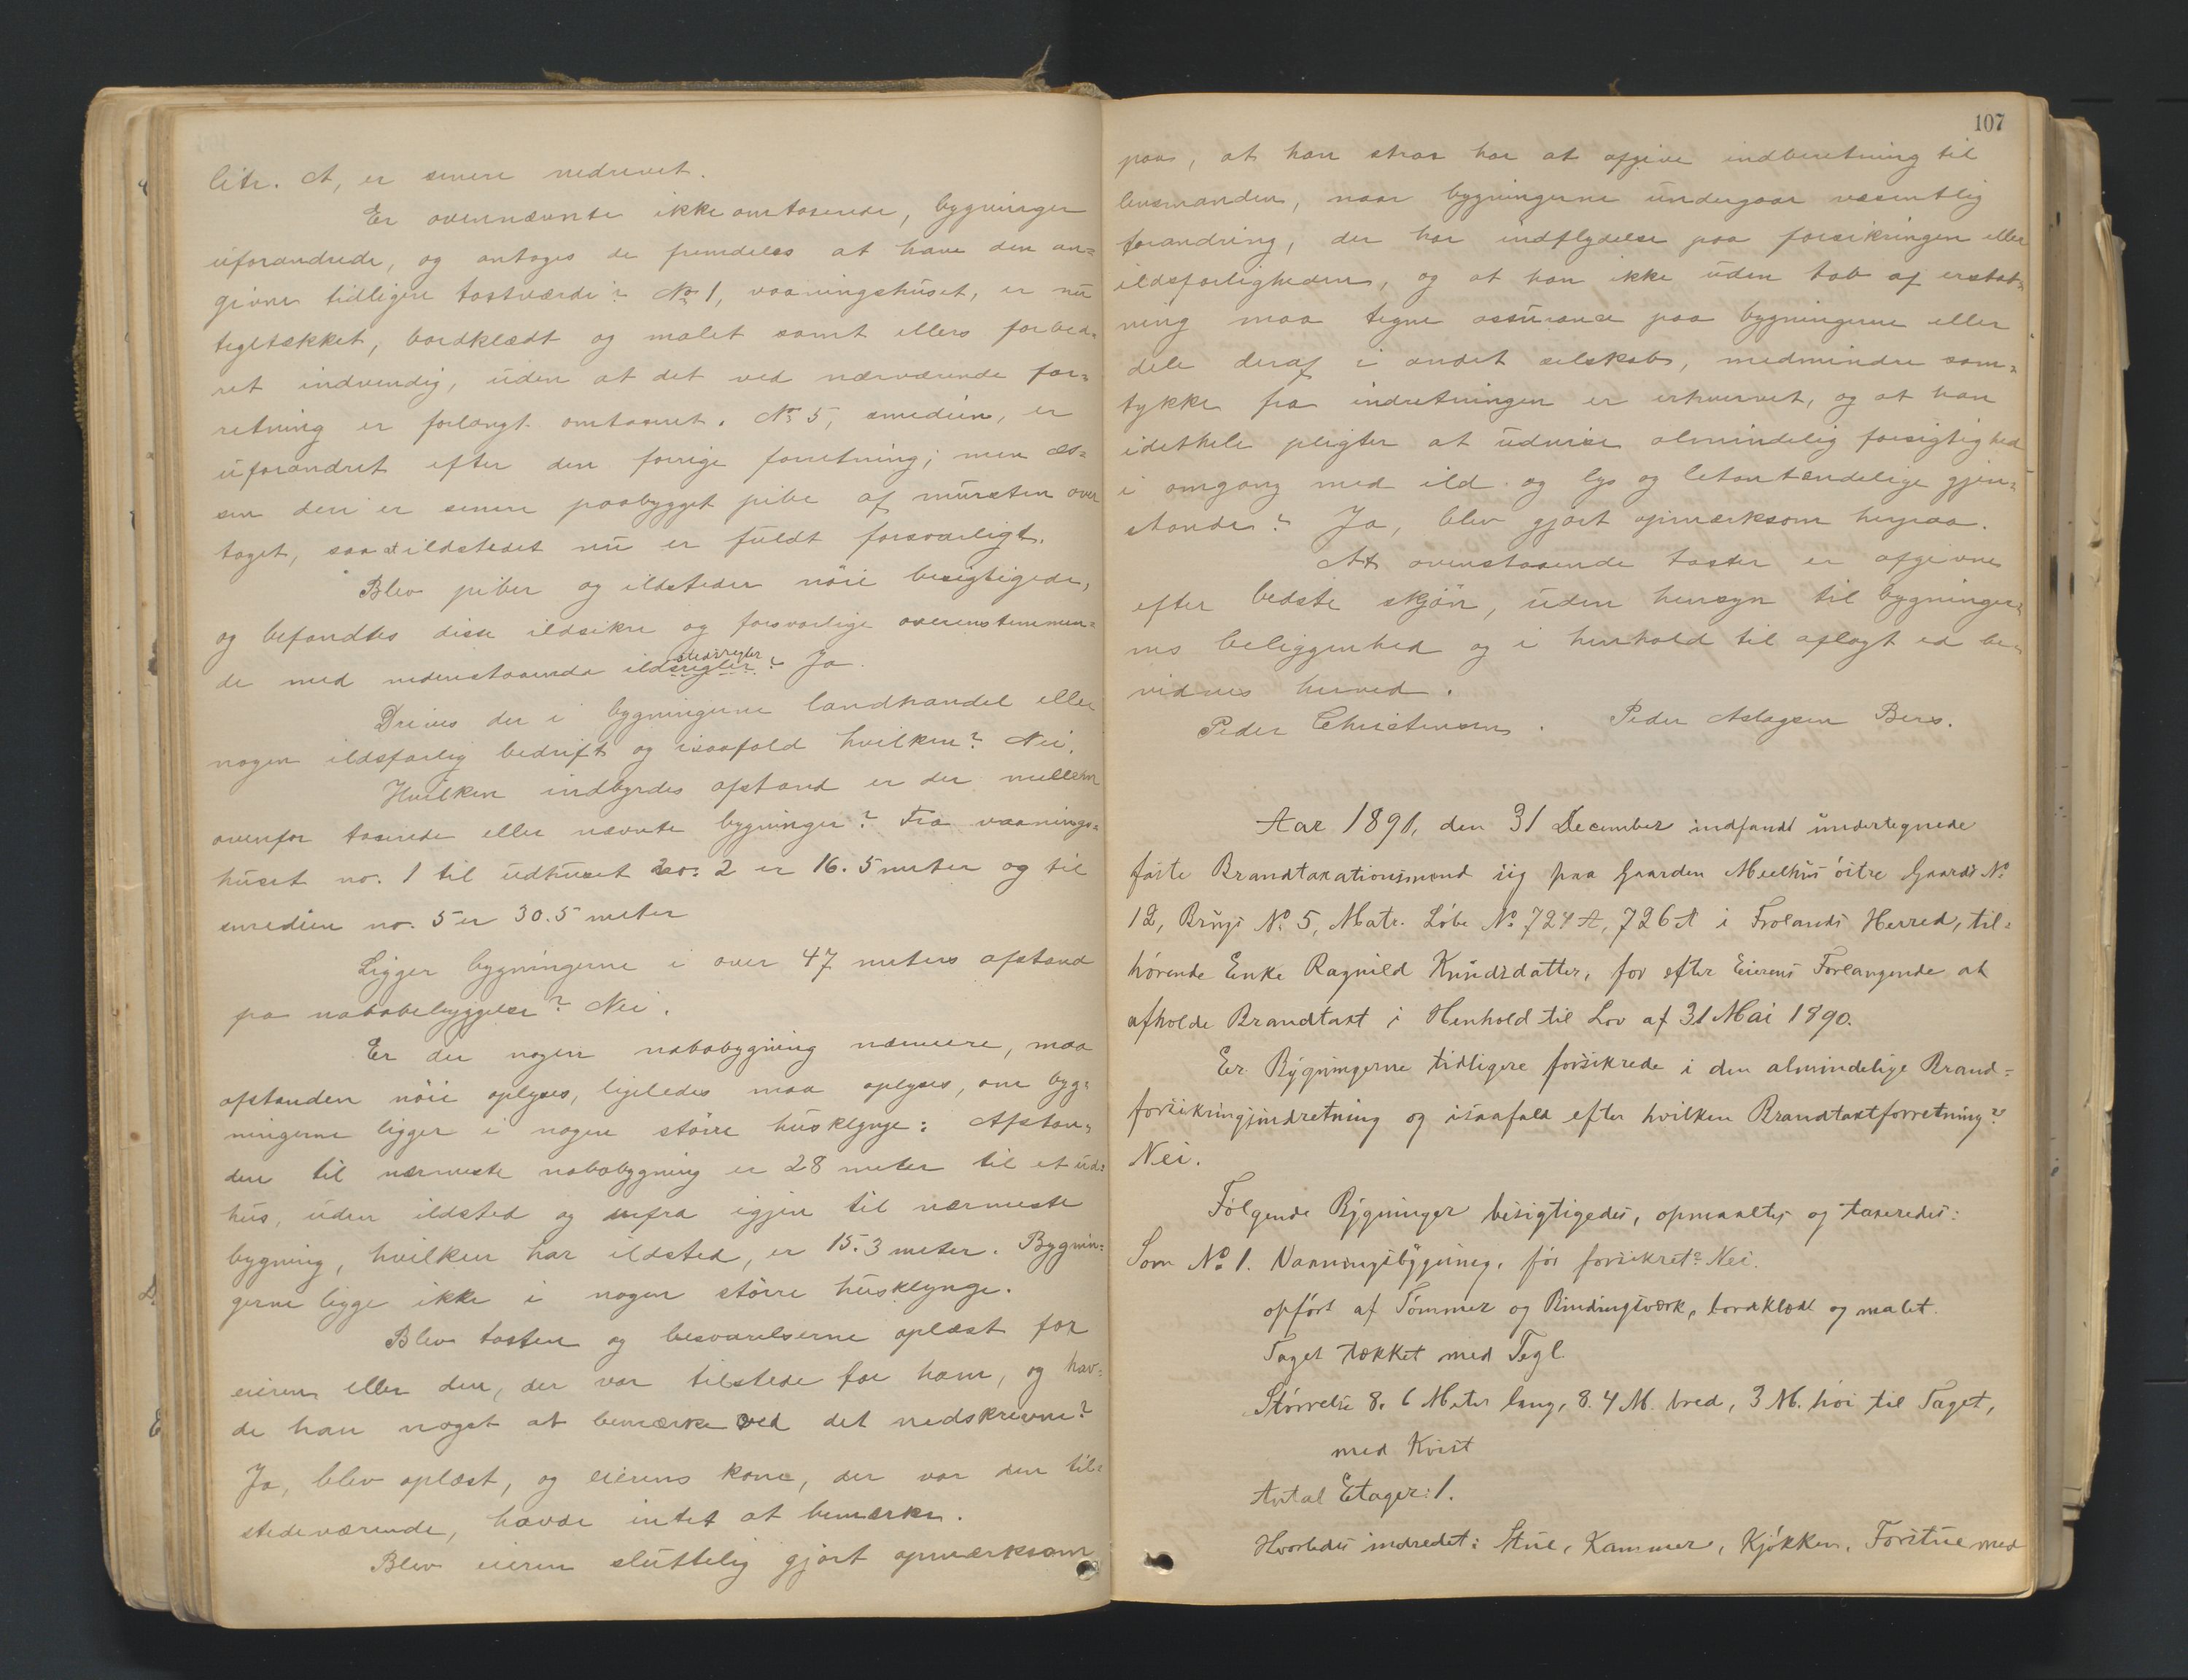 litr. A, er senere nedrevet.
Er ovennævnte ikke omtaxerede, bygninger
uforandrede, og antages de fremdeles at have den an=
givne tidligere taxtværdi? No 1, vaaningshuset, er nu
tegltækket, bordklædt og malet samt ellers forbed=
ret indvendig, uden at det ved nærværende for=
retning er forlangt omtaxeret. No 5, smedien, er
uforandret efter den forrige forretning; men æs=
sen deri er senere paabygget pibe af mursten over
taget, saa at ildstedet nu er fuldt forsvarligt.
Blev piber og ildsteder nöie besigtigede,
og befandtes disse ildsikre og forsvarlige overenstemmen=
de med nedenstaaende ildsregler? Ja.
stedsregler
Drives der i bygningerne landhandel eller
nogen ildsfarlig bedrift og isaafald hvilken? Nei.
Hvilken indbyrdes afstand er der mellem
ovenfor taxerede eller nævnte bygninger? Fra vaanings=
huset no. 1 til udhuset no. 2 er 16.5 meter og til
smedien no. 5 er 30.5 meter
Ligger bygningerne i over 47 meters afstand
fra nabobebyggelse? Nei.
Er der nogen nabobygning nærmere, maa
afstanden nöie oplyses, ligeledes maa oplyses, om byg=
ningerne ligger i nogen större husklynge: Afstan=
den til nærmeste nabobygning er 28 meter til et ud=
hus, uden ildsted og derfra igjen til nærmeste
bygning, hvilken har ildsted, er 15.3 meter. Bygnin=
gerne ligge ikke i nogen större husklynge.
Blev taxten og besvarelserne oplæst for
eieren eller den, der var tilstede for ham, og hav=
de han noget at bemærke ved det nedskrevne?
Ja, blev oplæst, og eierens kone, der var den til=
stedeværende, havde intet at bemærke.
Blev eieren sluttelig gjort opmærksom
107
paa, at han strax har at afgive indberetning til
lensmanden, naar bygningerne undergaar væsentlig
forandring, der har indflydelse paa forsikringen eller
ildsfarligheden, og at han ikke uden tab af erstat=
ning maa tegne assurance paa bygningerne eller
dele deraf i andet selskab, medmindre sam=
tykke fra indretningen er erhvervet, og at han
idethele pligter at udvise almindelig forsigtighed
i omgang med ild og lys og letantændelige gjen=
stande? Ja, blev gjort opmærksom herpaa.
At ovenstaaende taxter er afgivne
efter bedste skjön, uden hensyn til bygninger=
nes beliggenhed og i henhold til aflagt ed be=
vidnes herved.
Peder Christensen. Peder Aslagsen Bers.
Aar 1891, den 31 December indfandt undertegnede
faste Brandtaxationsmænd sig paa Gaarden Mjelhus östre Gaards No
12, Brugs No 5, Matr. Löbe No 724 A, 726 A i Frolands Herred, til=
hörende Enke Ragnild Knudsdatter, for efter Eierens Forlangende at
afholde Brandtaxt i Henhold til Lov af 31 Mai 1890.
Er Bygningerne tidligere forsikrede i den almindelige Brand=
forsikringsindretning og isaafald efter hvilken Brandtaxtforretning?
Nei.
Fölgende Bygninger besigtigedes, opmaaltes og taxeredes:
Som No 1. Vaaningsbygning, för forsikret? Nei.
opfört af Tömmer og Bindingsværk, bordklædt og malet.
Taget tækket med Tegl.
Störrelse 8.6 Meter lang, 8.4 M. bred, 3 M. höi til Taget,
med Kvist
Antal Etager: 1.
Hvorledes indredet: Stue, Kammer, Kjökken, Forstue med